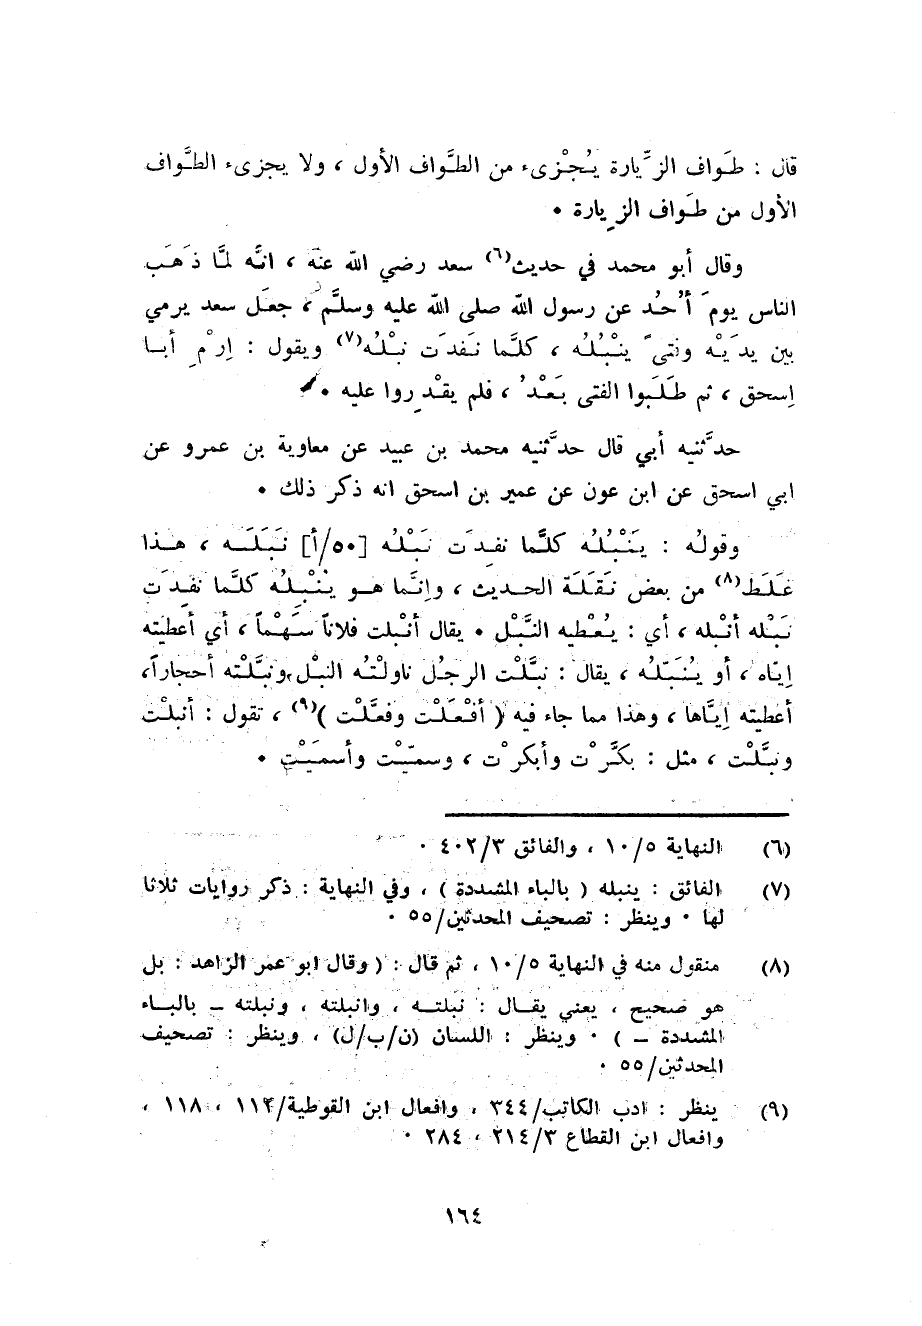 قال : طَواف الزِّيارة يُجْزىء من الطَّواف الأول ، ولا يجزىء الطَّواف
الأول من طَواف الزِيارة .
وقال أبو محمد في حديث(٦) سعد رضي الله عنه ، انَّه لمَّا ذَهَب
الناس يومَ أُحُد عن رسول الله صلى الله عليه وسلَّم ، جعَل سعد يرمي
بين يدَيْه وفتىً ينْبُله ، كلَّما نَفدَت نبْلُه(٧) ويقول : إرْمِ أبا
إسحق ، ثم طَلَبوا الفتى بَعْدُ ، فلم يقْدِروا عليه .
حدَّثنيه أبي قال حدَّثنيه محمد بن عبيد عن معاوية بن عمرو عن
ابي اسحق عن ابن عون عن عمير بن اسحق انه ذكر ذلك .
وقولُه : يَنْبُلُه كلَّما نفدَت نَبْلُه [٥٠/أ] نَبَلَه ، هذا
غَلَط(٨) من بعض نَقَلَة الحديث ، وإنَّما هو يُنْبِلُه كلَّما نفدَت
نَبْله أنْبله ، أي : يُعْطيه النَّبْل . يقال أنْبلت فلاناً سَهْماً ، أي أعطيته
إيّاه ، أو يُنَبِّلُه ، يقال : نبَّلْت الرجُل ناولْتُه النبْل ، ونبَّلْته أحجاراً ،
أعطيته إيَّاها ، وهذا مما جاء فيه ( أفْعَلْت وفعَّلْت )(٩) ، تقول : أنبلْت
ونبَّلْت ، مثل : بكَّرْت وأبكرْت ، وسميّْت وأسمَيْت .
(٦) النهاية ١٠/٥ ، والفائق ٤٠٢/٣ .
(٧) الفائق : ينبله ( بالباء المشددة ) ، وفي النهاية : ذكر روايات ثلاثا
لها . وينظر : تصحيف المحدثين/٥٥ .
(٨) منقول منه في النهاية ١٠/٥ ، ثم قال : ( وقال ابو عمر الزاهد : بل
هو صحيح ، يعني يقال : نبلته ، وانبلته ، ونبلته ــ بالباء
المشددة ــ ) . وينظر : اللسان (ن/ب/ل) ، وينظر : تصحيف
المحدثين/٥٥ .
(٩) ينظر : ادب الكاتب/٣٤٤ ، وافعال ابن القوطية/١١٤ ، ١١٨ ،
وافعال ابن القطاع ٢١٤/٣ ، ٢٨٤ .
١٦٤